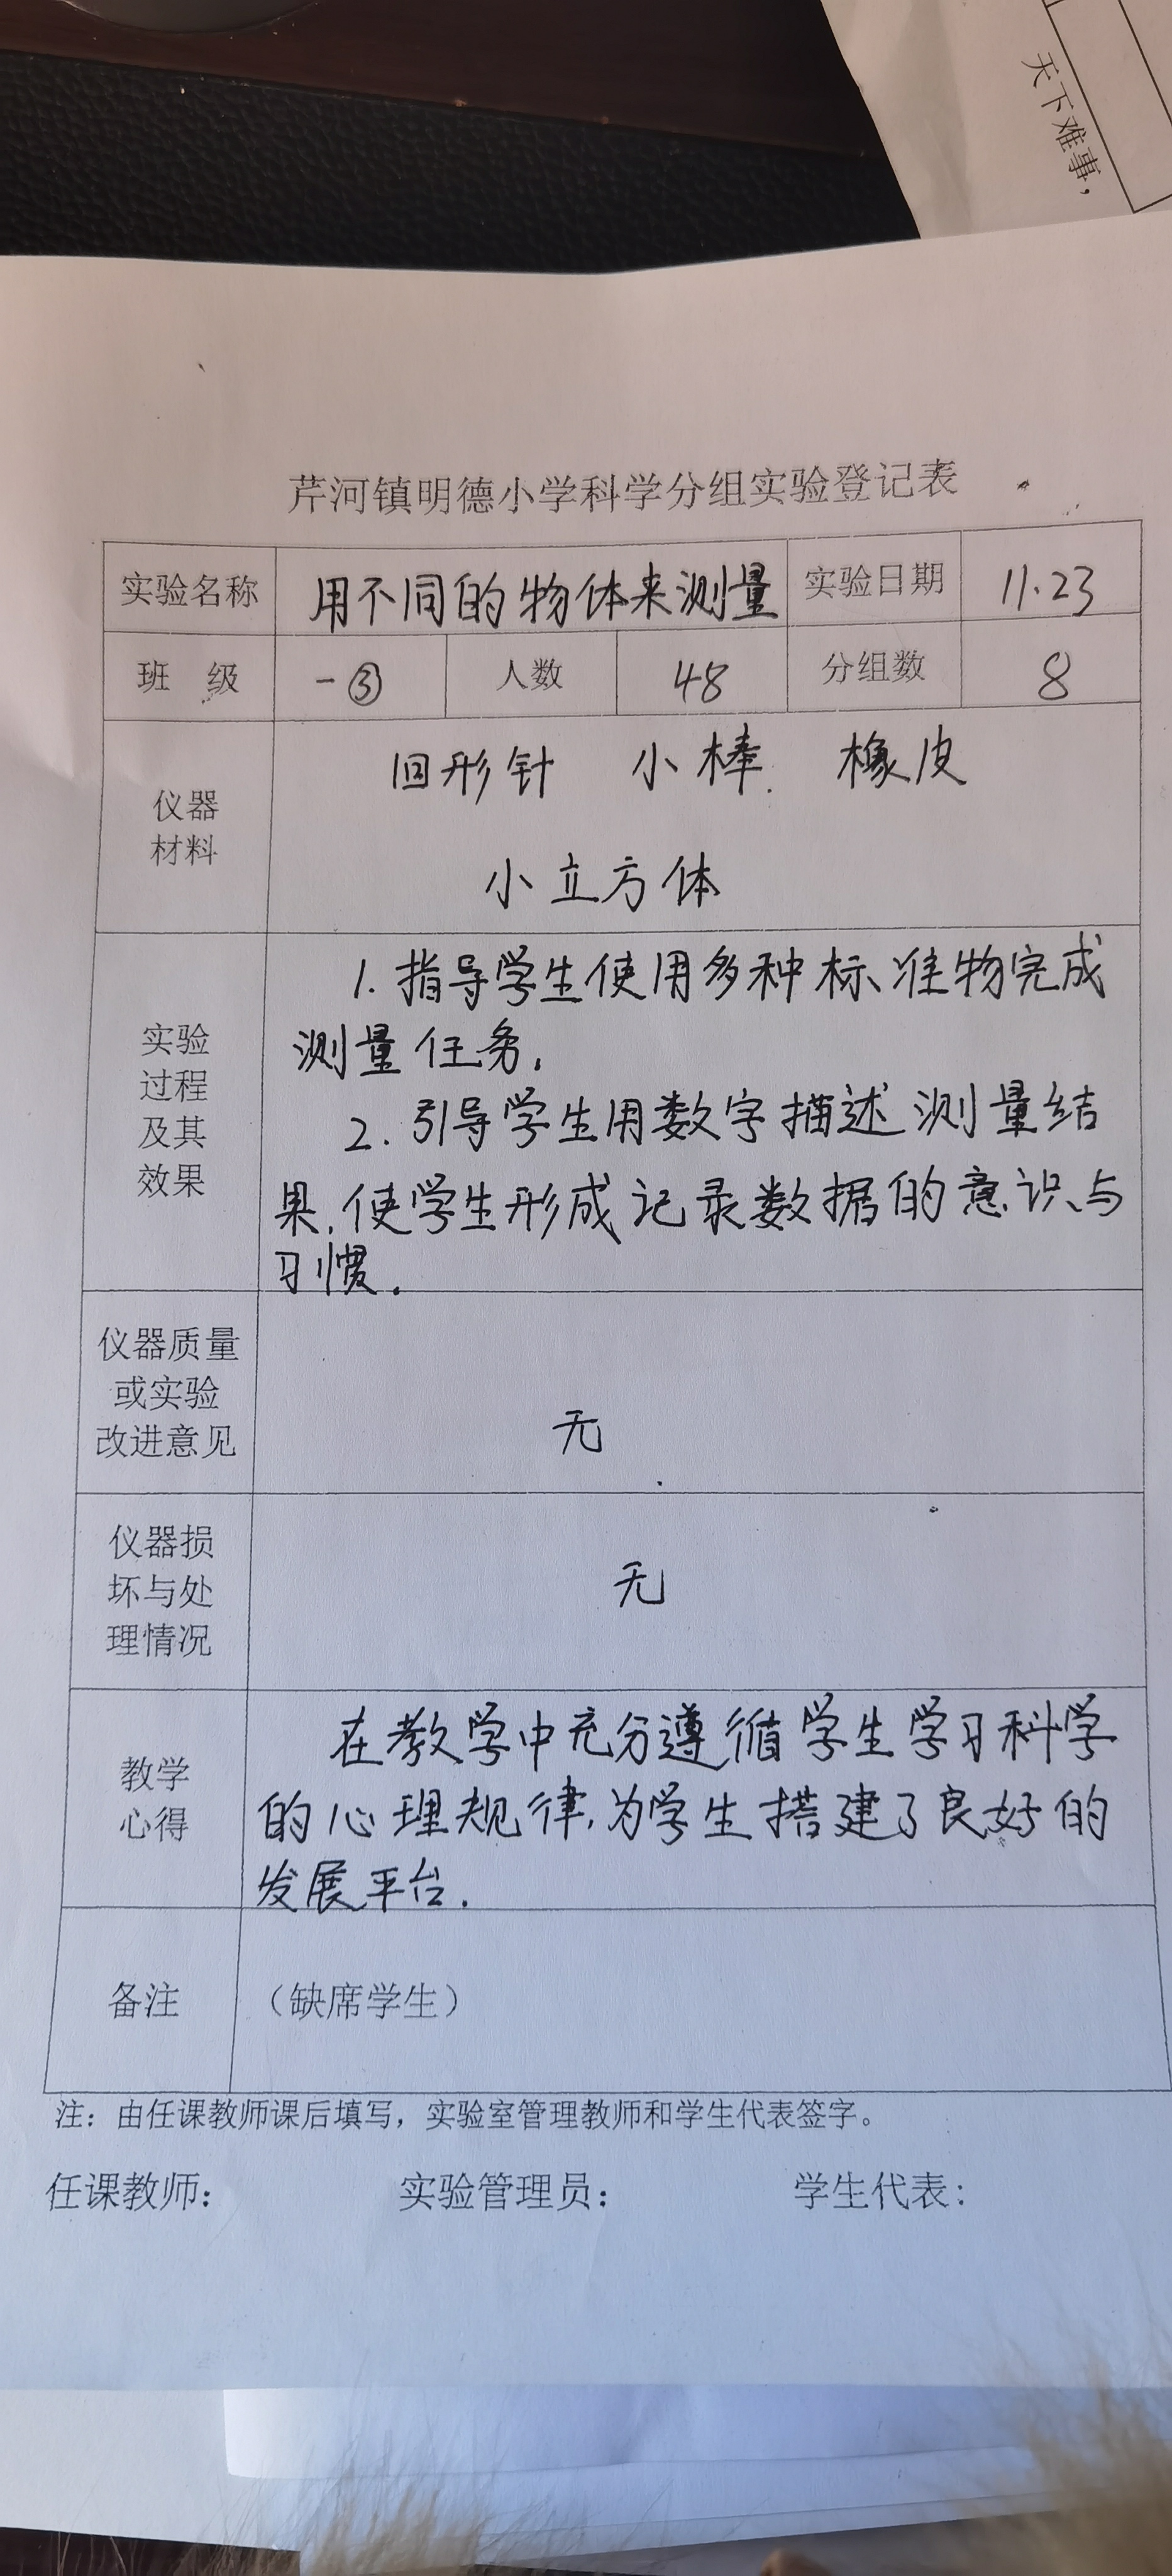 天下难事，
芹河镇明德小学科学分组实验登记表
实验名称 用不同的物体来测量 实验日期 11.23
班 级 一③ 人数 48 分组数 8
仪器
材料
回形针 小棒 橡皮
小立方体
实验
过程
及其
效果
1. 指导学生使用多种标准物完成
测量任务.
2. 引导学生用数字描述测量结
果,使学生形成记录数据的意识与
习惯.
仪器质量
或实验
改进意见
无
仪器损
坏与处
理情况
无
教学
心得
在教学中充分遵循学生学习科学
的心理规律,为学生搭建了良好的
发展平台.
备注 （缺席学生）
注：由任课教师课后填写，实验室管理教师和学生代表签字。
任课教师： 实验管理员： 学生代表：